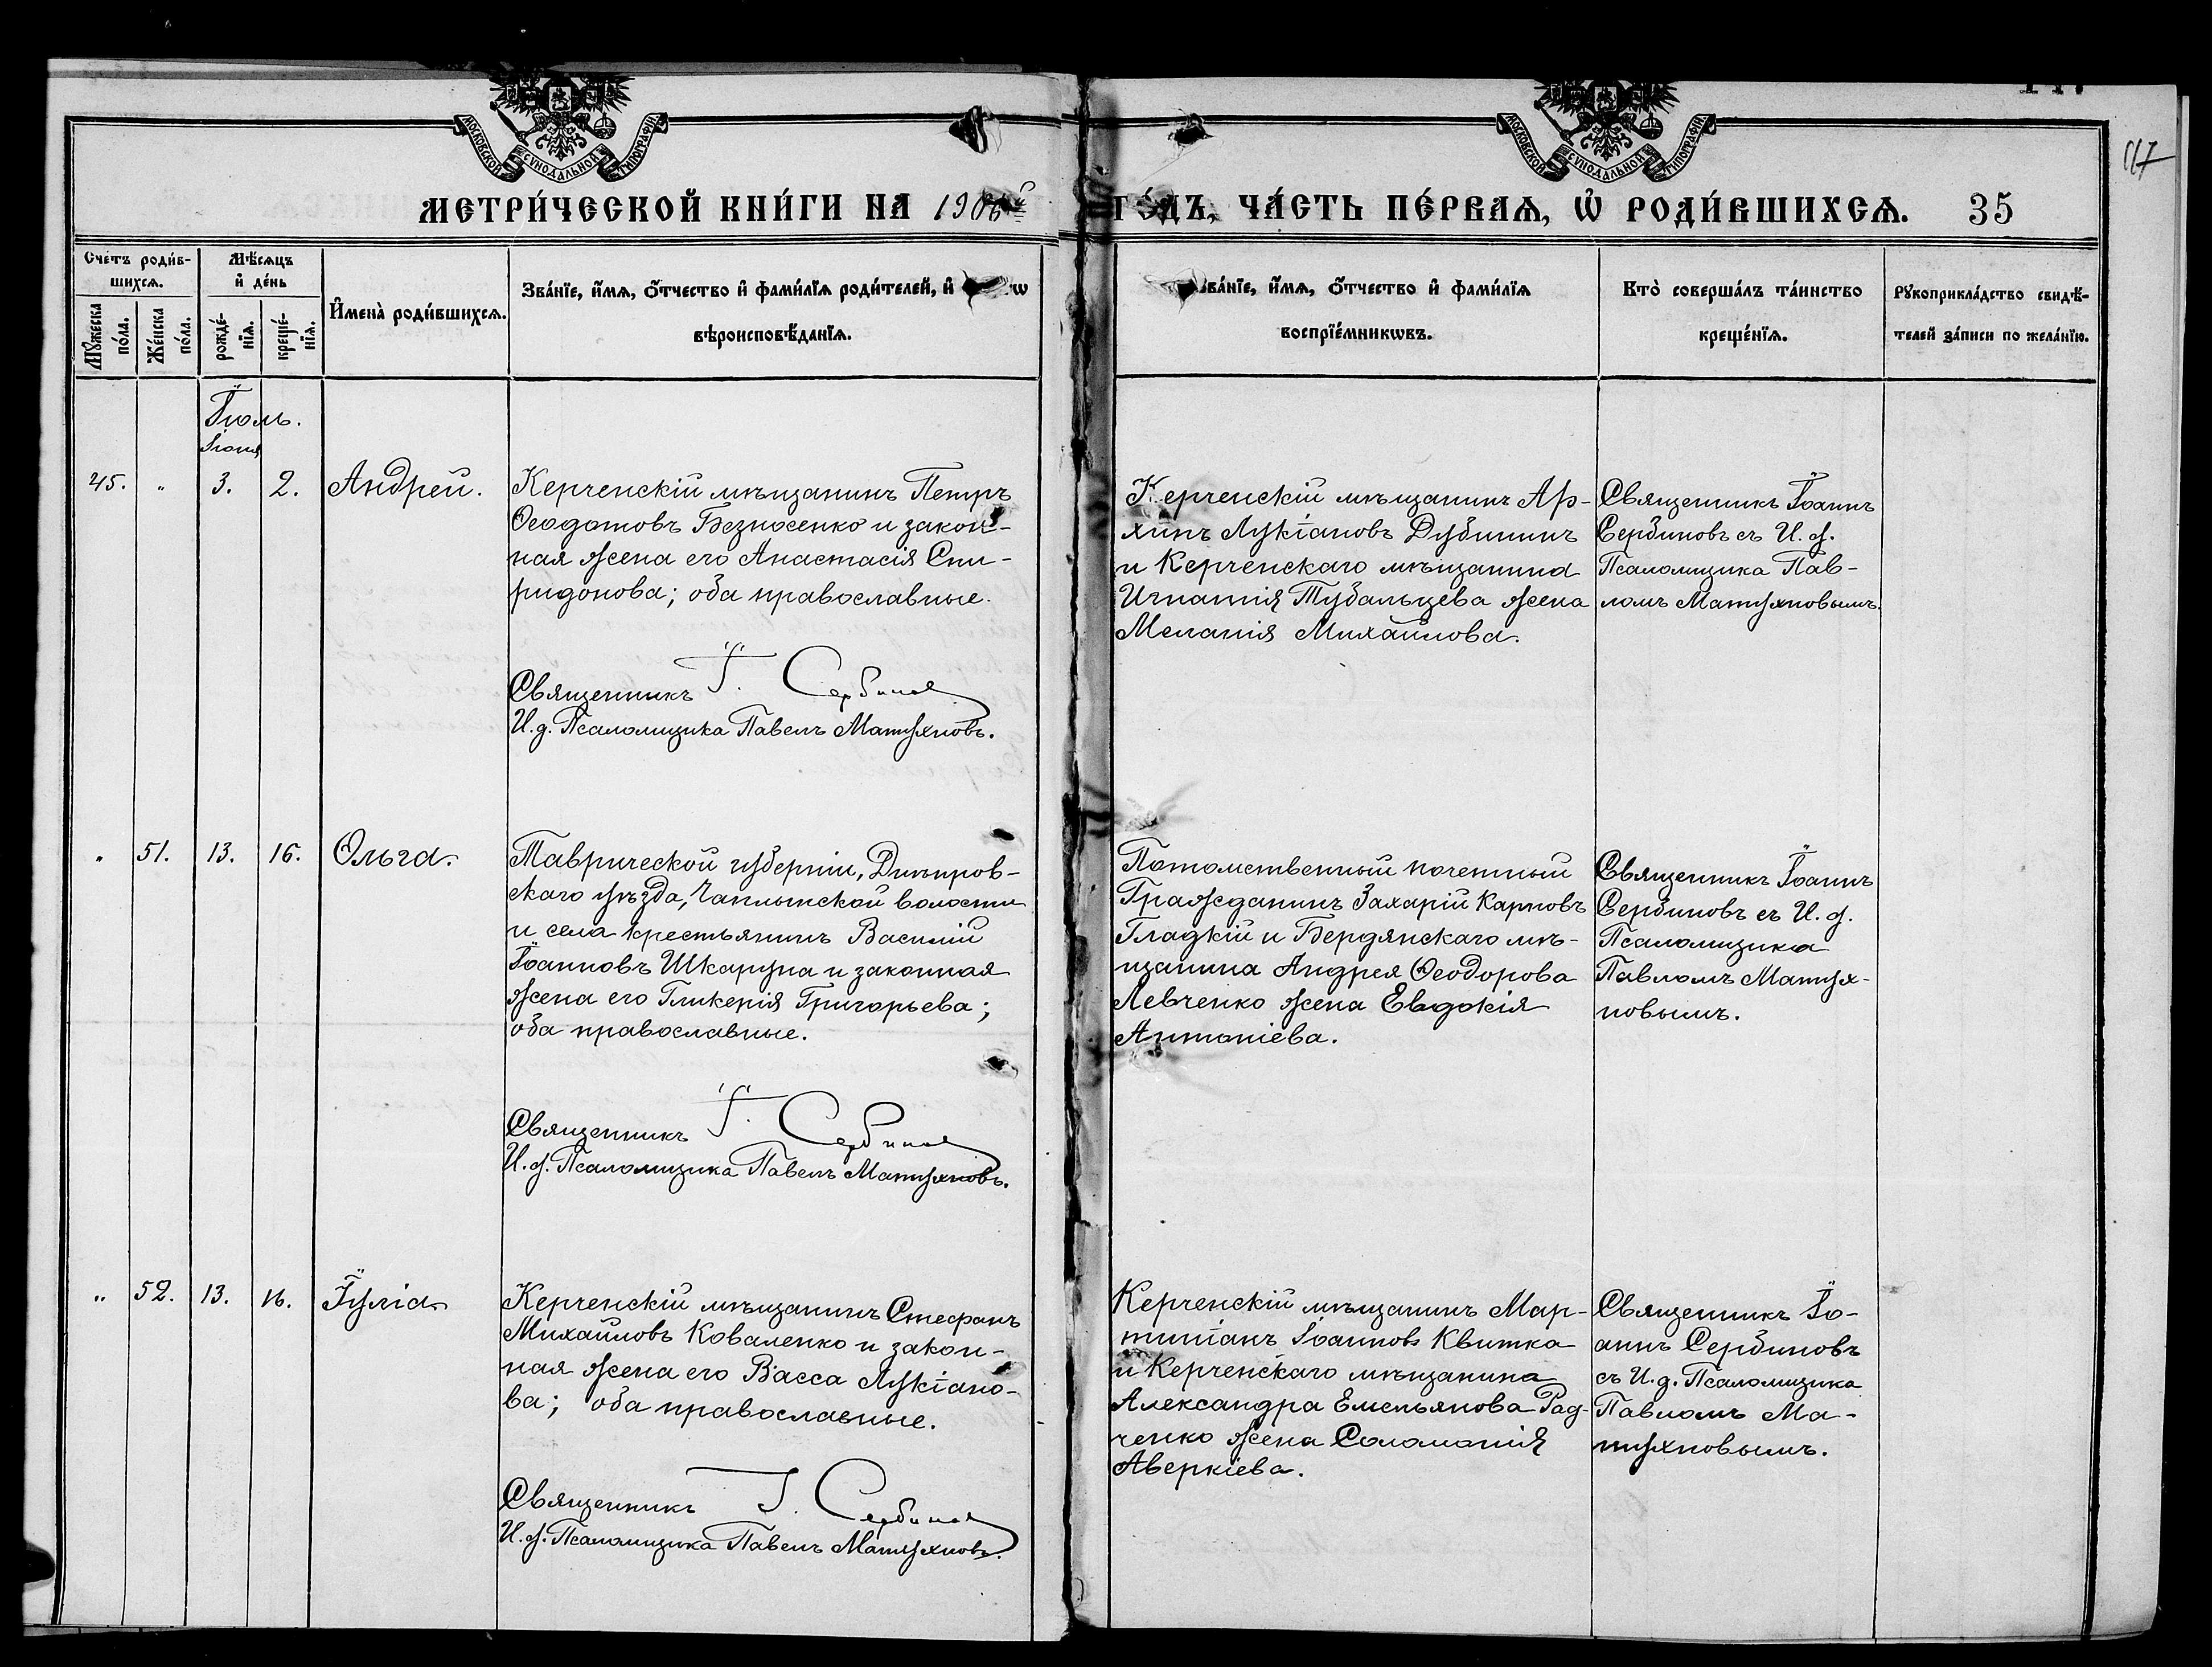 МОСКОВСКОЙ СУНОДАЛЬНОЙ ТИПОГРАФИИ
МОСКОВСКОЙ СУНОДАЛЬНОЙ ТИПОГРАФИИ
117
МЕТРИ́ЧЕСКОЙ КНИ́ГИ НА 1906й
ГО́ДЪ, ЧА́СТЬ ПЕ́РВАѦ, Ѡ҆ РОДИ́ВШИХСѦ. 35
Сче́тъ роди́в-
шихсѧ.
Мѣ́сѧцъ
и҆ де́нь
Мꙋ́жеска
по́ла.
Же́нска
по́ла.
рожде́-
нїѧ.
креще́-
нїѧ.
И҆мена̀ роди́вшихсѧ.
Зва́нїе, и҆́мѧ, ѻ҆́тчество и҆ фами́лїѧ роди́телей, и҆
вѣроисповѣ́данїѧ.
зва́нїе, и҆́мѧ, ѻ҆́тчество и҆ фами́лїѧ
воспрїе́мникѡвъ.
Кто̀ соверша́лъ та́инство
креще́нїѧ.
Рꙋкоприкла́дство свидѣ́-
телей за́писи по жела́нїю.
Іюль.
Іюня
45. „ 3. 2. Андрей.
Керченскій мѣщанинъ Петръ
Ѳеодотовъ Безносенко и закон-
ная жена его Анастасія Спи-
ридонова; оба православные.
Священникъ І. Сербинов
И. д. Псаломщика Павелъ Матухновъ.
Керченскій мѣщанинъ Ар-
хипъ Лукіановъ Дубининъ
и Керченскаго мѣщанина
Игнатія Тубальцева жена
Меланія Михайлова.
Священникъ Іоаннъ
Сербиновъ съ И. д.
Псаломщика Пав-
ломъ Матухновымъ.
„ 51. 13. 16. Ольга.
Таврической губерніи, Днѣпров-
скаго уѣзда, Чаплынской волости
и села крестьянинъ Василій
Іоанновъ Шкарупа и законная
жена его Гликерія Григорьева;
оба православные.
Священникъ І. Сербинов
И. д. Псаломщика Павелъ Матухновъ.
Потомственный почетный
Гражданинъ Захарій Карповъ
Гладкій и Бердянскаго мѣ-
щанина Андрея Ѳеодорова
Левченко жена Евдокія
Антоніева.
Священникъ Іоаннъ
Сербиновъ съ И. д.
Псаломщика
Павломъ Матух-
новымъ.
„ 52. 13. 16. Іулія
Керченскій мѣщанинъ Стефанъ
Михайловъ Коваленко и закон-
ная жена его Васса Лукіано-
ва; оба православные.
Священникъ І. Сербинов
И. д. Псаломщика Павелъ Матухновъ.
Керченскій мѣщанинъ Мар-
тиніанъ Іоанновъ Квитка
и Керченскаго мѣщанина
Александра Емельянова Рад-
ченко жена Соломонія
Аверкіева.
Священникъ Іо-
аннъ Сербиновъ
съ И. д. Псаломщика
Павломъ Ма-
тухновымъ.